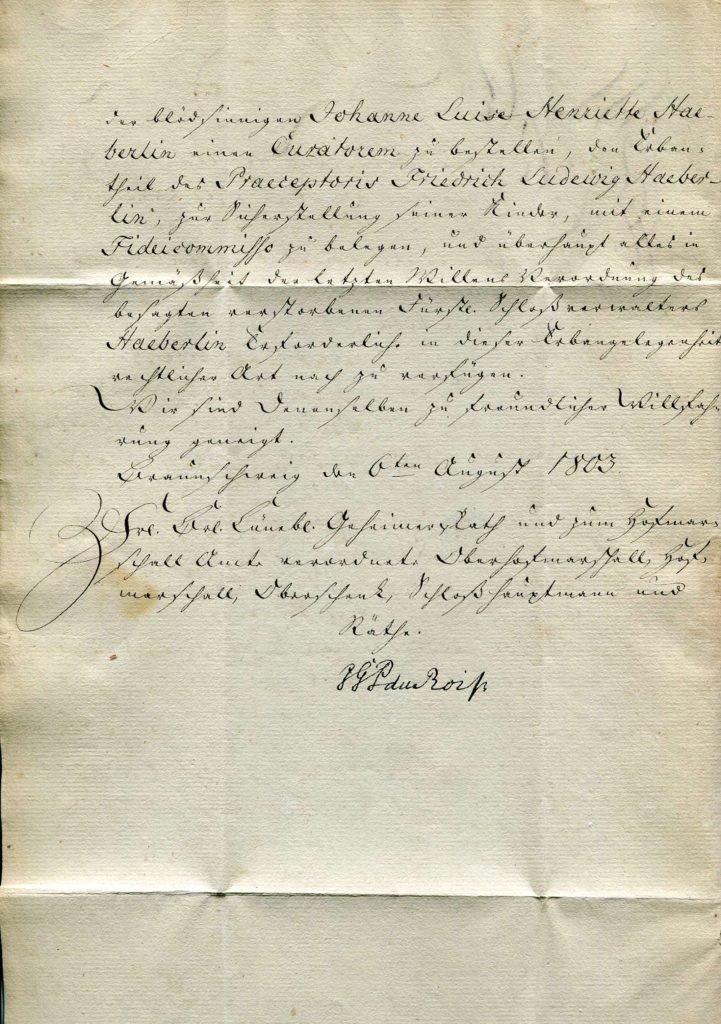 der blödsinnigen Johanne Luise Henriette Hae-
berlin einen Curatorem zu bestellen, den Erban-
theil des Praeceptoris Friedrich Ludewig Haeber-
lin, zur Sicherstellung seiner Kinder, mit einem
Fideicommisso zu belegen, und überhaupt alles in
Gemäßheit der letzten Willens Verordnung des
besagten verstorbenen Fürstl. Schloßverwalters
Haeberlin Erforderliche in dieser Erbangelegenheit
rechtlicher Art nach zu verfügen.
Wir sind Denenselben zu freundlicher Willfah-
rung geneigt.
Braunschweig den 6ten August 1803.
Frl. Brl. Lünebl. Geheimer Rath und zum Hofmar-
schall Amte verordnete Oberhofmarschall, Hof-
marschall, Oberschenk, Schloßhauptmann und
Räthe.
du Roi